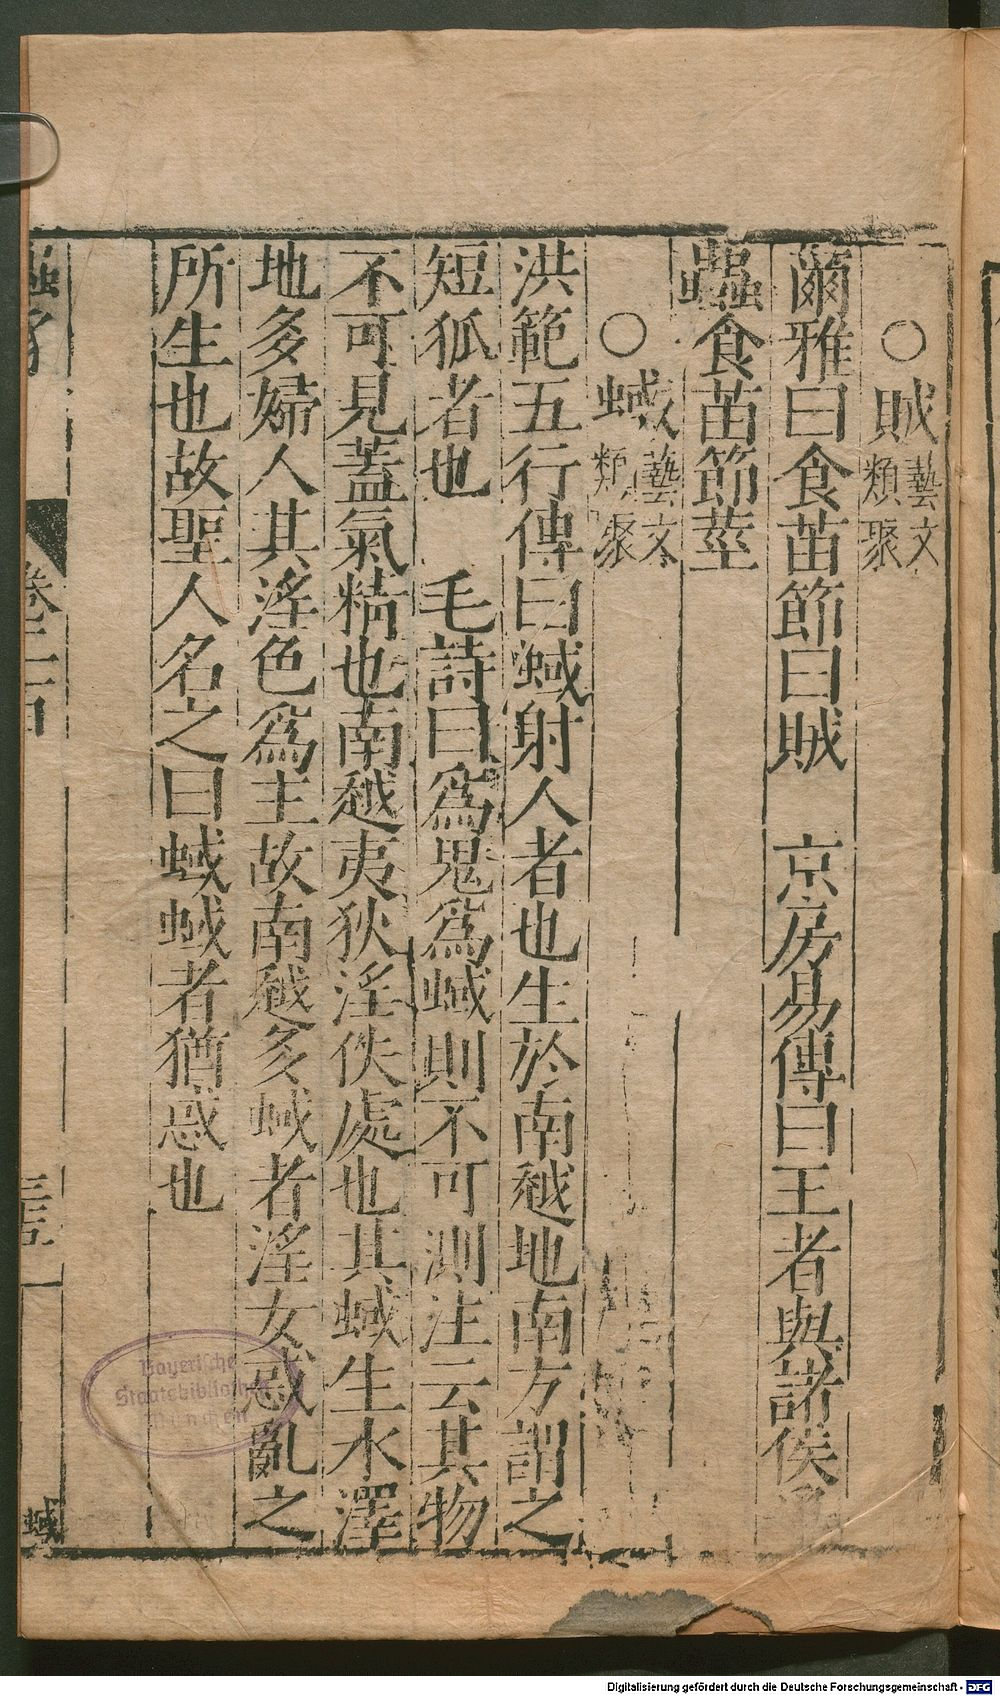 ○賊藝文類聚
爾雅曰食苗節曰賊　京房易傳曰王者與諸侯
蟲食苗節莖
○蜮藝文類聚
洪範五行傳曰蜮射人者也生於南越地南方謂之
短狐者也　毛詩曰爲鬼爲蜮則不可測注云其物
不可見蓋氣精也南越夷狄淫佚處也其蜮生水澤
地多婦人其淫色爲主故南越多蜮者淫女惑亂之
所生也故聖人名之曰蜮蜮者猶惑也
蟲豸
卷二百
三五
蜮
Bayerische
Staatsbibliothek
München
Digitalisierung gefördert durch die Deutsche Forschungsgemeinschaft - DFG